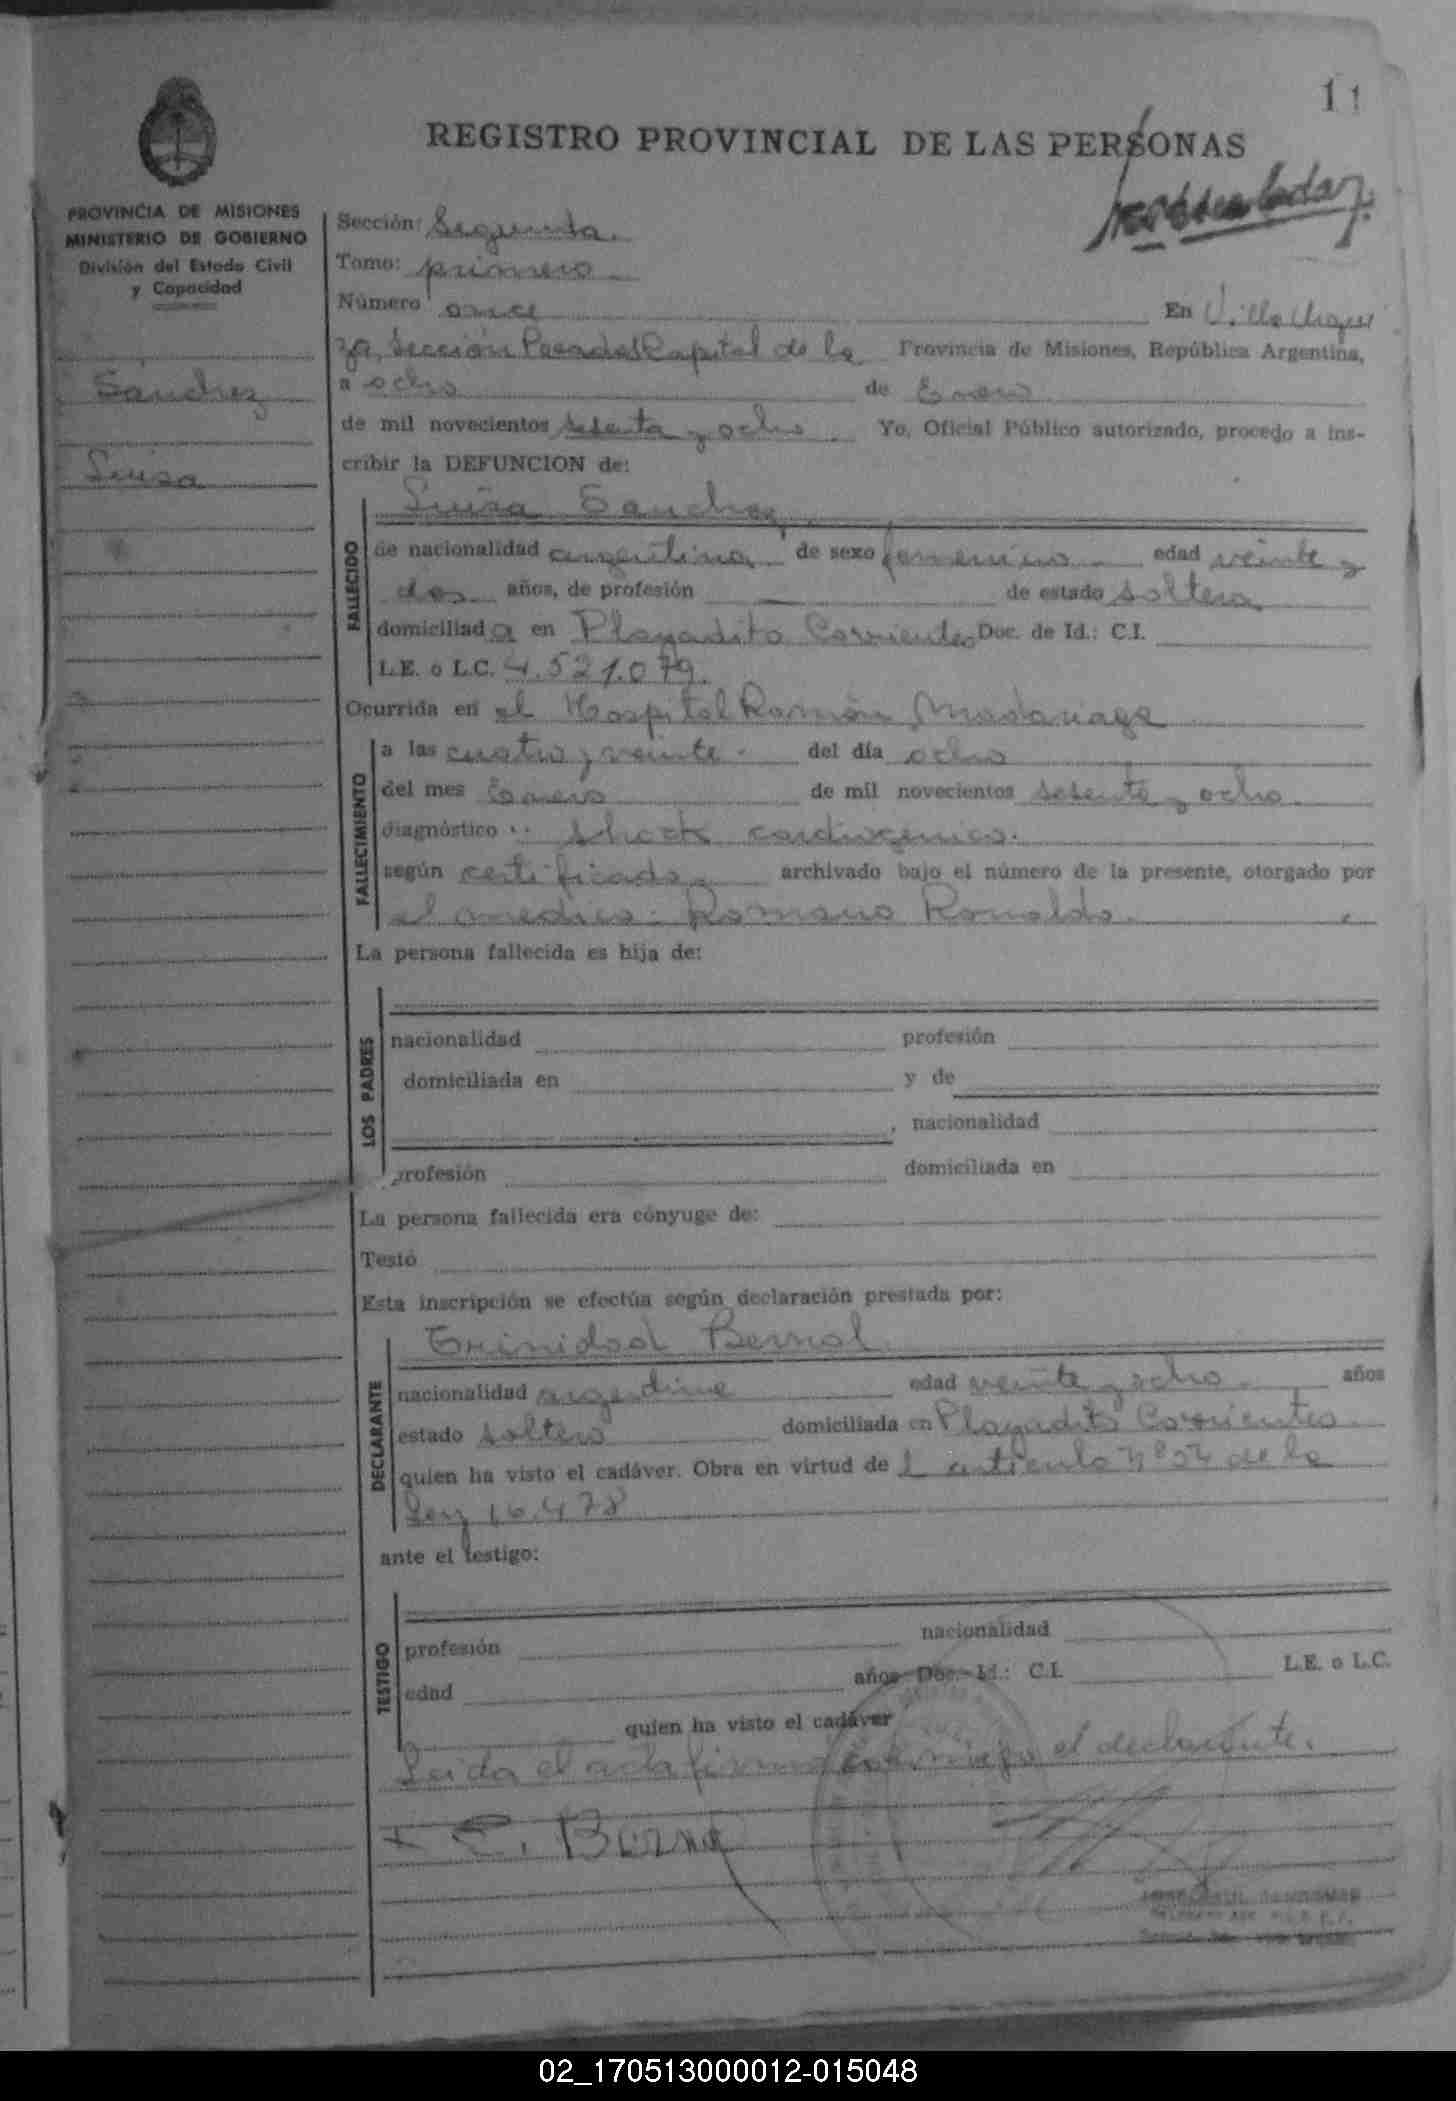 11
REGISTRO PROVINCIAL DE LAS PERSONAS
PROVINCIA DE MISIONES
MINISTERIO DE GOBIERNO
División del Estado Civil
y Capacidad
Sánchez
Luisa
Sección: Segunda.
Tomo: primero
Número once En Villa Urqui
za, Sección Posadas Capital de la Provincia de Misiones, República Argentina,
a ocho de Enero
de mil novecientos setenta y ocho. Yo, Oficial Público autorizado, procedo a ins-
cribir la DEFUNCION de:
Luisa Sanchez
FALLECIDO
de nacionalidad argentina de sexo femenino edad veinte y
dos años, de profesión de estado soltera
domiciliada en Playadito Corrientes Doc. de Id.: C.I.
L.E. o L.C. 4.521.079.
Ocurrida en el Hospital Ramón Madariaga
FALLECIMIENTO
a las cuatro y veinte. del día ocho
del mes Enero de mil novecientos setenta y ocho.
diagnóstico: shock cardiogenico.
según certificado archivado bajo el número de la presente, otorgado por
el medico: Romano Ronaldo.
La persona fallecida es hija de:
LOS PADRES
nacionalidad profesión
domiciliada en y de
, nacionalidad
profesión domiciliada en
La persona fallecida era cónyuge de:
Testó
Esta inscripción se efectúa según declaración prestada por:
Trinidad Bernal
DECLARANTE
nacionalidad argentina edad veinte y ocho. años
estado soltero domiciliada en Playadito Corrientes
quien ha visto el cadáver. Obra en virtud de l articulo de la
Ley 16.478
ante el testigo:
TESTIGO
profesión nacionalidad
edad años Doc. Id.: C.I. L.E. o L.C.
quien ha visto el cadáver
Leida el acta firma conmigo el declarante.
02_170513000012-015048